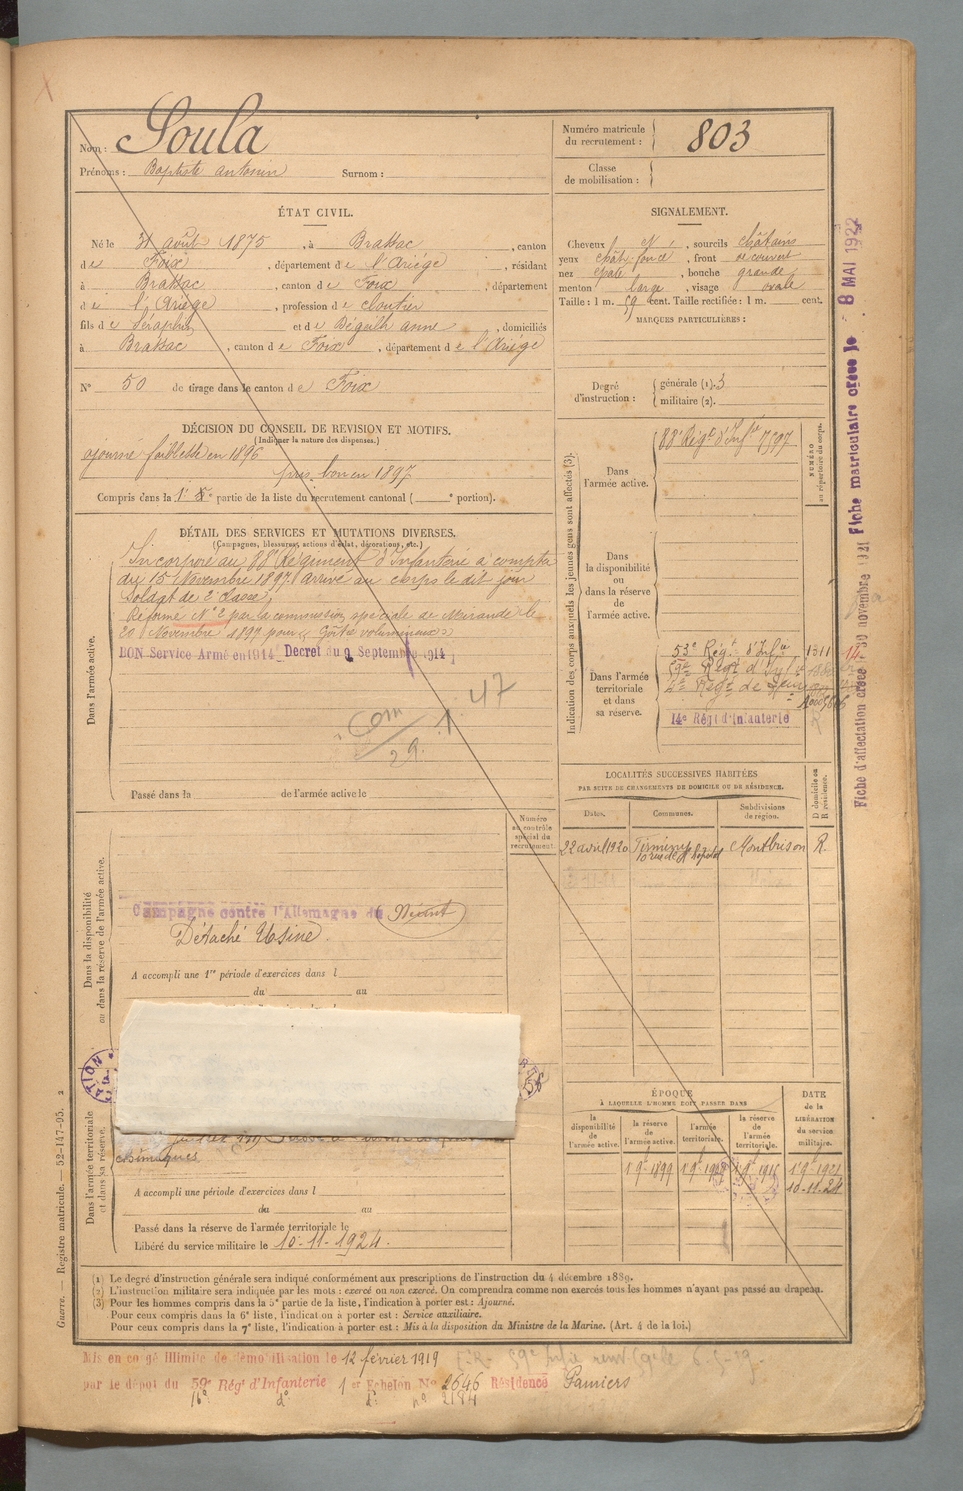 Nom : Soula
Prénoms : Baptiste antonin Surnom :
Numéro matricule du recrutement : 803
Classe de mobilisation :
ÉTAT CIVIL.
Né le 31 août 1875, à Brassac, canton
de Foix, département de l'Ariége, résidant
à Brassac, canton de Foix, département
de l'Ariége, profession de cloutier
fils de Séraphin et de Dégeilh anne, domiciliés
à Brassac, canton de Foix, département de l'Ariége
N° 50 de tirage dans le canton de Foix
SIGNALEMENT.
Cheveux N, sourcils châtains
yeux chât. foncé, front découvert
nez épaté, bouche grande
menton large, visage ovale
Taille : 1 m. 59 cent. Taille rectifiée : 1 m. cent.
MARQUES PARTICULIÈRES :
Degré d'instruction : générale (1). 3
militaire (2).
DÉCISION DU CONSEIL DE REVISION ET MOTIFS.
(Indiquer la nature des dispenses.)
ajourné faiblesse en 1896
pris bon en 1897
Compris dans la 1e partie de la liste du recrutement cantonal ( e portion).
DÉTAIL DES SERVICES ET MUTATIONS DIVERSES.
(Campagnes, blessures, actions d'éclat, décorations, etc.)
Dans l'armée active.
Incorporé au 88e Régiment d'Infanterie à compter
du 15 Novembre 1897. Arrivé au corps le dit jour
Soldat de 2e classe,
Réformé N° 2 par la commission spéciale de Mirande le
20 Novembre 1899 pour « Goître volumineux »
BON Service Armé en 1914 Decret du 9 Septembre 1914
47
29.
Passé dans la de l'armée active le
Indication des corps auxquels les jeunes gens sont affectés (3).
NUMÉRO au répertoire du corps.
Dans l'armée active.
88e Régt d'Infrie
Dans la disponibilité ou dans la réserve de l'armée active.
Dans l'armée territoriale et dans sa réserve.
53e Régt d'Infrie 1311
59e Régt d'Infrie
14e Régt d'Infanterie
Fiche matriculaire créée le 8 MAI 1922
Fiche d'affectation créée - 30 novembre 1921
LOCALITÉS SUCCESSIVES HABITÉES
PAR SUITE DE CHANGEMENTS DE DOMICILE OU DE RÉSIDENCE.
Dates. Communes. Subdivisions de région. D domicile ou R résidence.
22 avril 1920 Firminy Montbrison R.
10 rue de l'hôpital
Numéro au contrôle spécial du recrutement
Dans la disponibilité ou dans la réserve de l'armée active.
Campagne contre l'Allemagne du Néant
Détaché Usine.
A accompli une 1re période d'exercices dans l
du au
Dans l'armée territoriale et dans sa réserve.
chimiques
A accompli une période d'exercices dans l
du au
Passé dans la réserve de l'armée territoriale le
Libéré du service militaire le 10-11-1924.
ÉPOQUE
À LAQUELLE L'HOMME DOIT PASSER DANS
la disponibilité de l'armée active. la réserve de l'armée active. l'armée territoriale. la réserve de l'armée territoriale. DATE de la LIBÉRATION du service militaire.
1 9bre 1899
10-11-24
(1) Le degré d'instruction générale sera indiqué conformément aux prescriptions de l'instruction du 4 décembre 1889.
(2) L'instruction militaire sera indiquée par les mots : exercé ou non exercé. On comprendra comme non exercés tous les hommes n'ayant pas passé au drapeau.
(3) Pour les hommes compris dans la 5e partie de la liste, l'indication à porter est : Ajourné.
Pour ceux compris dans la 6e liste, l'indication à porter est : Service auxiliaire.
Pour ceux compris dans la 7e liste, l'indication à porter est : Mis à la disposition du Ministre de la Marine. (Art. 4 de la loi.)
Guerre. — Registre matricule. — 52-147-95. 2
Mis en congé illimité de démobilisation le 12 février 1919
par le dépôt du 59e Régt d'Infanterie 1er Echelon N° 2646 Résidence Pamiers
16e do do no 2184